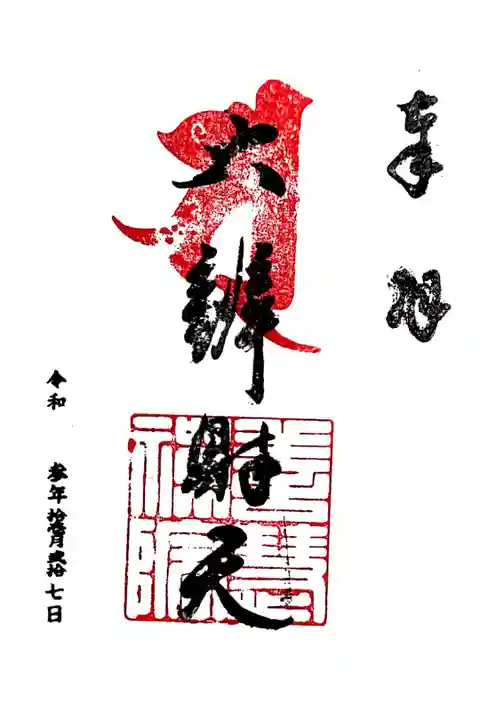 奉拝
大辨財天
令和 参年拾壹月弐拾七日